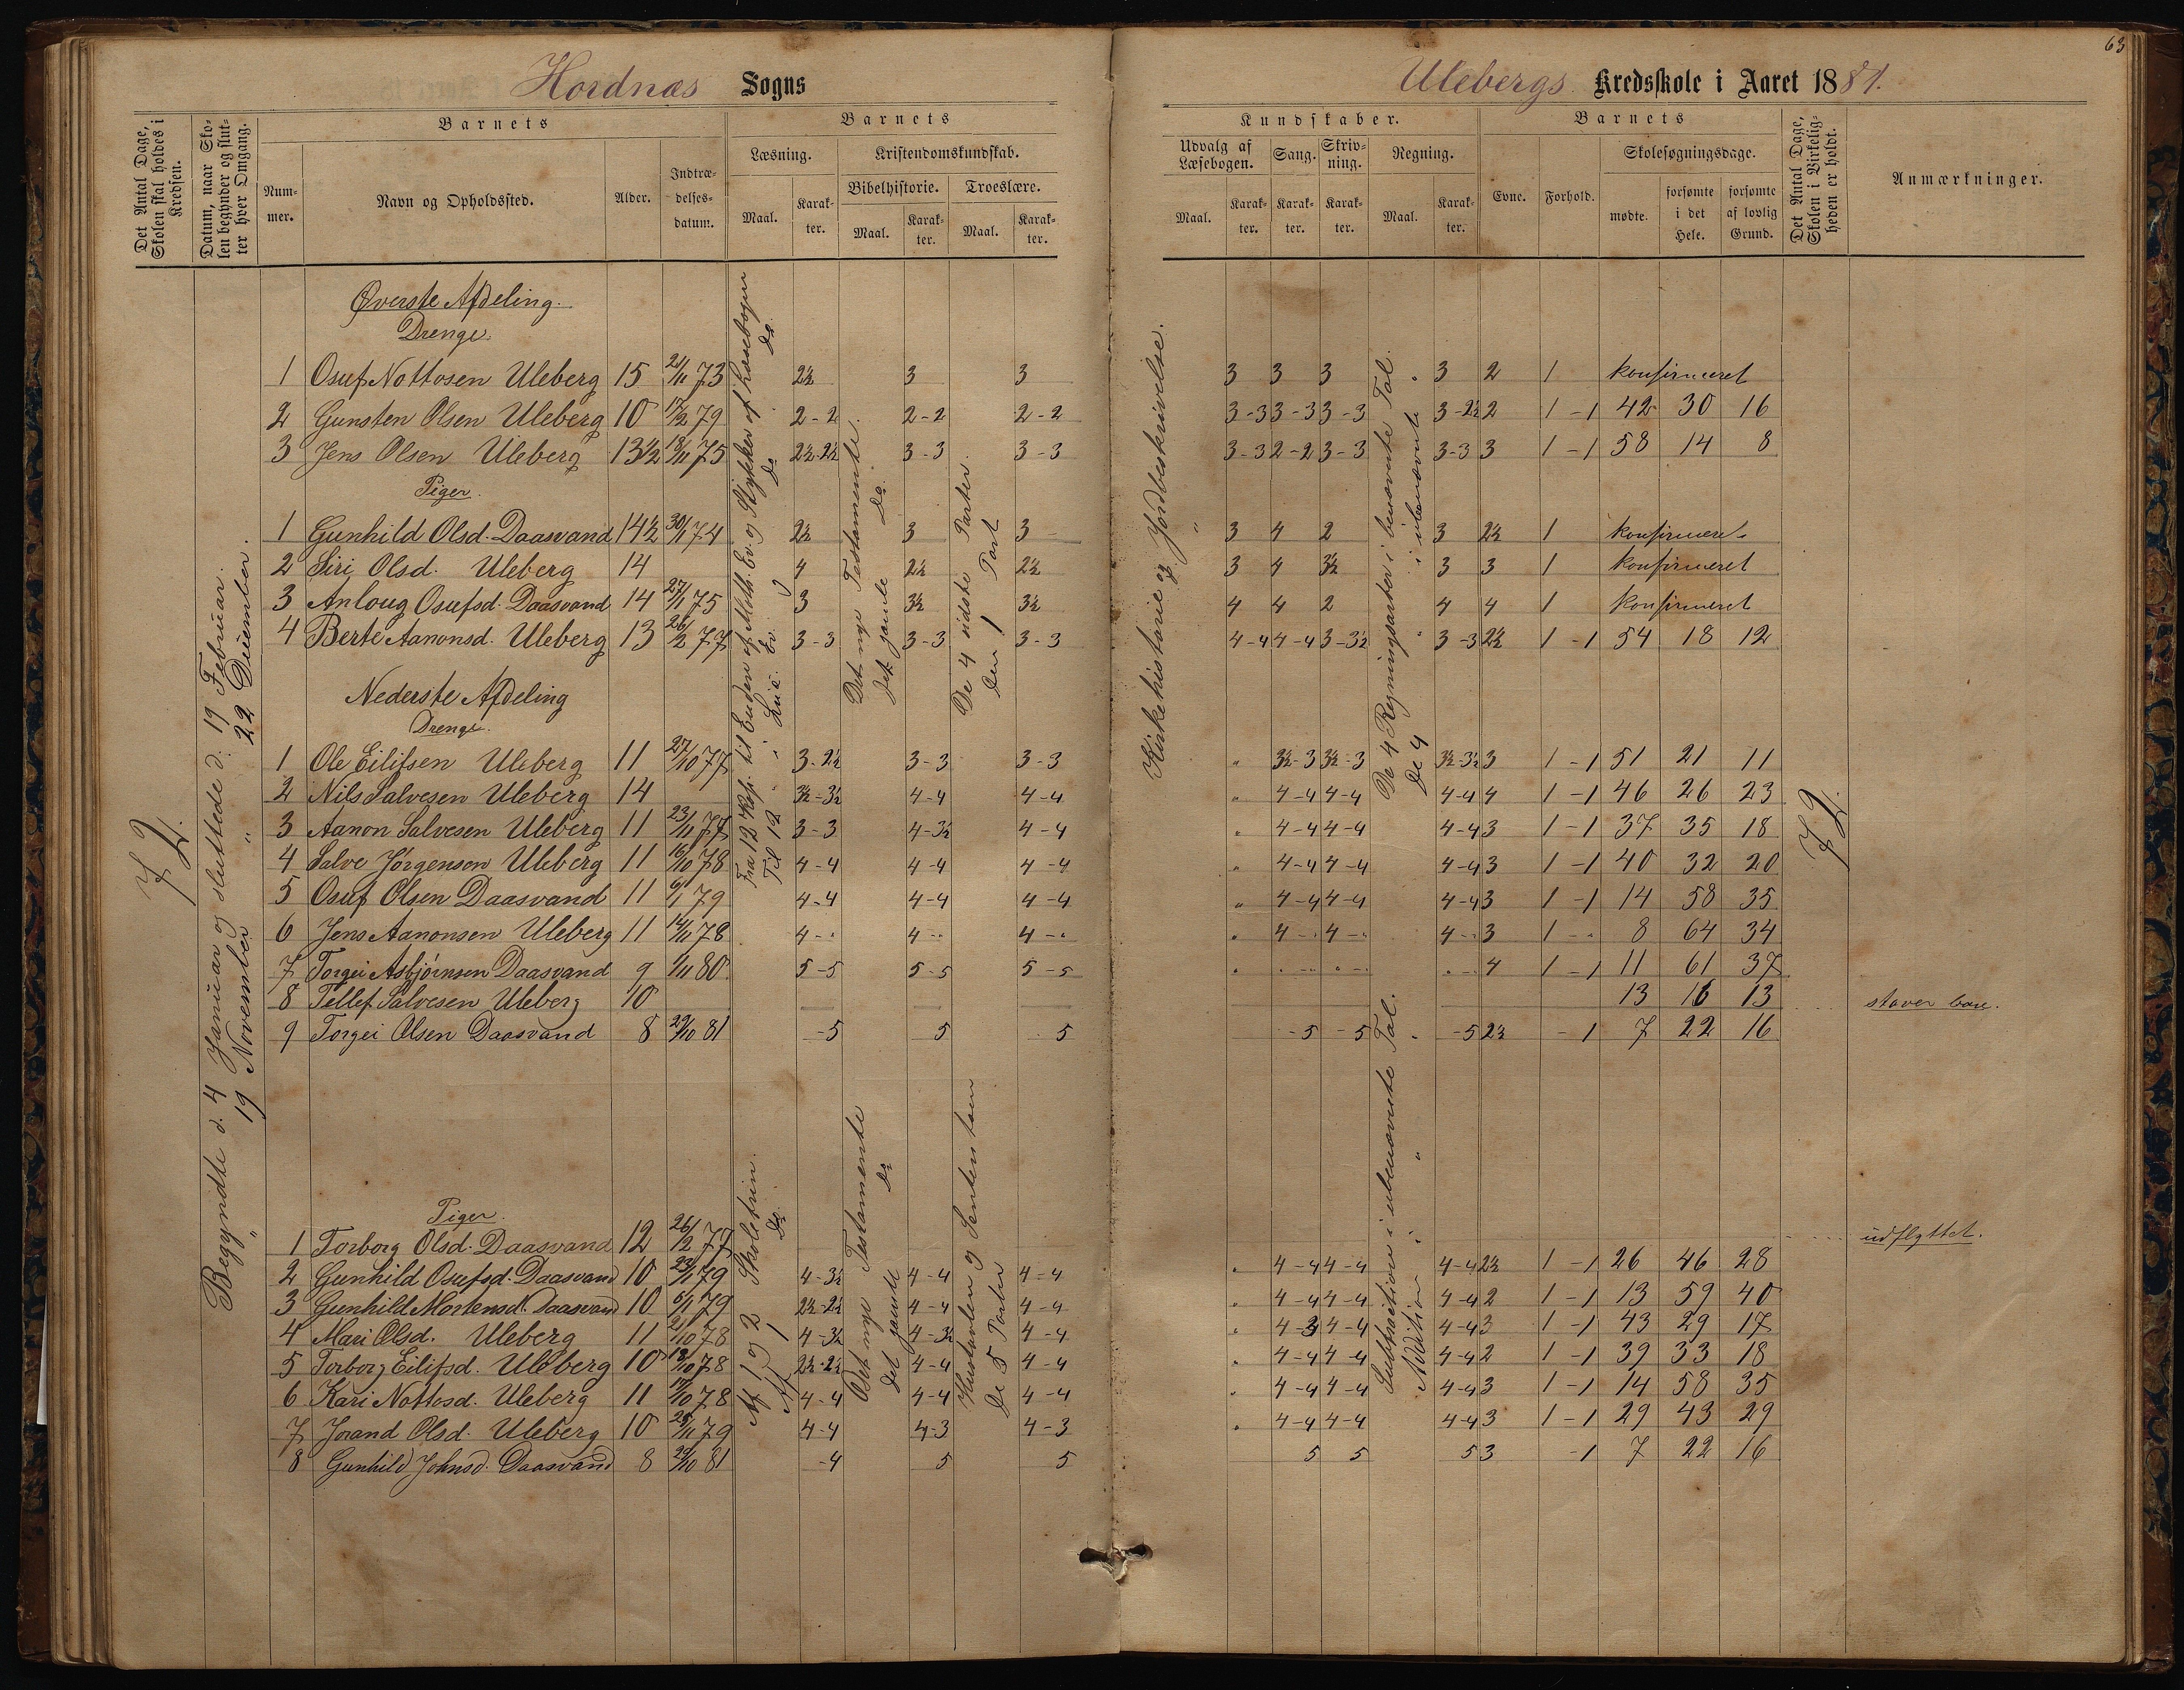 63
Hordnæs Sogns
Ulebergs Kredsskole i Aaret 1881.
Det Antal Dage, Skolen skal holdes i Kredsen.
Datum, naar Skolen begynder og slutter hver Omgang.
Barnets
Nummer.
Navn og Opholdssted.
Alder.
Indtrædelsesdatum.
Barnets
Læsning.
Maal.
Karakter.
Kristendomskundskab.
Bibelhistorie.
Maal.
Karakter.
Troeslære.
Maal.
Karakter.
Kundskaber.
Udvalg af Læsebogen.
Maal.
Karakter.
Sang.
Karakter.
Skrivning.
Karakter.
Regning.
Maal.
Karakter.
Barnets
Evne.
Forhold.
Skolesøgningsdage.
mødte.
forsømte i det Hele.
forsømte af lovlig Grund.
Det Antal Dage, Skolen i Virkeligheden er holdt.
Anmærkninger.
72.
Begyndte d. 4 Januar og sluttede d. 19 Februar.
" 19 November " 22 December.
Fra 12 Kap. til Enden af Math. Ev. og Stykker af Læsebogen
Til 12 " i Luc. Ev. og Do. Do.
Det nye Testamente.
Det gamle Do.
De 4 sidste Parter.
Den 1 Part
Kirkehistorie og Jordbeskrivelse.
"
De 4 Regningsarter i benævnte Tal.
De 4 " i ubenævnte "
72.
Øverste Afdeling.
Drenge.
1 Osuf Nottosen Uleberg 15 24/11 73 2½ 3 3 3 3 3 3 2 1 konfirmeret
2 Gunsten Olsen Uleberg 10 17/2 79 2-2 2-2 2-2 3-3 3-3 3-3 3-2½ 2 1-1 42 30 16
3 Jens Olsen Uleberg 13½ 18/11 75 2½-2½ 3-3 3-3 3-3 2-2 3-3 3-3 3 1-1 58 14 8
Piger.
1 Gunhild Olsd. Daasvand 14½ 30/1 74 2½ 3 3 3 4 2 3 2½ 1 konfirmeret
2 Siri Olsd. Uleberg 14 4 2½ 2½ 3 4 3½ 3 3 1 konfirmeret
3 Anloug Osufsd. Daasvand 14 27/1 75 3 3½ 3½ 4 4 2 4 4 1 konfirmeret
4 Berte Aanonsd. Uleberg 13 26/2 77 3-3 3-3 3-3 4-4 4-4 3-3½ 3-3 2½ 1-1 54 18 12
Nederste Afdeling
Drenge.
1 Ole Eilifsen Uleberg 11 27/10 77 3-2½ 3-3 3-3 " 3½-3 3½-3 3½-3½ 3 1-1 51 21 11
2 Nils Salvesen Uleberg 14 3½-3½ 4-4 4-4 " 4-4 4-4 4-4 4 1-1 46 26 23
3 Aanon Salvesen Uleberg 11 23/11 77 3-3 4-3½ 4-4 " 4-4 4-4 4-4 3 1-1 37 35 18
4 Salve Jørgensen Uleberg 11 16/10 78 4-4 4-4 4-4 " 4-4 4-4 4-4 3 1-1 40 32 20
5 Osuf Olsen Daasvand 11 6/1 79 4-4 4-4 4-4 " 4-4 4-4 4-4 3 1-1 14 58 35
6 Jens Aanonsen Uleberg 11 14/11 78 4-" 4-" 4-" " 4-" 4-" 4-" 3 1-" 8 64 34
7 Torgei Asbjørnsen Daasvand 9 1/11 80. 5-5 5-5 5-5 " "-" "-" "-" 4 1-1 11 61 37
8 Tellef Salvesen Uleberg 10 13 16 13 staver bare.
9 Torgei Olsen Daasvand 8 29/10 81 -5 5 5 -5 -5 -5 2½ -1 7 22 16
Af 1 og 2 Skoletrin.
Af 1 Do.
Det nye Testamente
Det gamle Do
Hustavlen og Sentensen
De 5 Parter
Subtraktion i ubenævnte Tal.
Addition i " "
Piger.
1 Torborg Olsd. Daasvand 12 26/2 77 udflyttet.
2 Gunhild Osufsd. Daasvand 10 23/1 79 4-3½ 4-4 4-4 " 4-4 4-4 4-4 2½ 1-1 26 46 28
3 Gunhild Mortensd. Daasvand 10 6/1 79 2½-2½ 4-4 4-4 " 4-4 4-4 4-4 2 1-1 13 59 40
4 Mari Olsd. Uleberg 11 21/10 78 4-3½ 4-3½ 4-4 " 4-3 4-4 4-4 3 1-1 43 29 17
5 Torborg Eilifsd. Uleberg 10 19/10 78 2½-2½ 4-4 4-4 " 4-4 4-4 4-4 2 1-1 39 33 18
6 Kari Nottosd. Uleberg 11 17/10 78 4-4 4-4 4-4 " 4-4 4-4 4-4 3 1-1 14 58 35
7 Jorand Olsd. Uleberg 10 25/11 79 4-4 4-3 4-3 " 4-4 4-4 4-4 3 1-1 29 43 29
8 Gunhild Johnsd. Daasvand 8 29/10 81 -4 5 5 5 5 5 3 -1 7 22 16